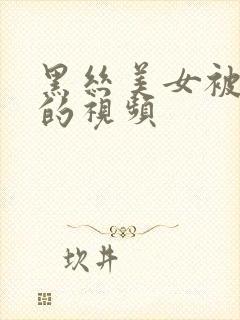 黑丝美女被
的視頻
坎井